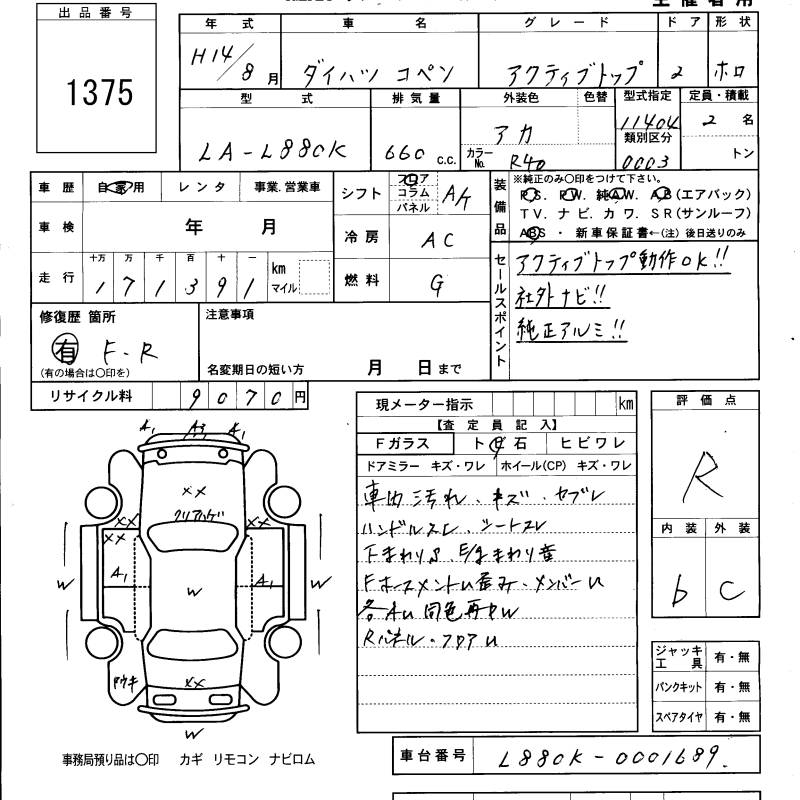 出品番号
1375
年式 車名 グレード ドア 形状
H14/8月 ダイハツ コペン アクティブトップ 2 ホロ
型式 排気量 外装色 色替 型式指定 定員・積載
LA-L880K 660 c.c. アカ 11404 2名
カラーNo. R40 類別区分 0003 トン
車歴 自家用 レンタ 事業.営業車
車検 年 月
走行 十万 万 千 百 十 一 km マイル
171391
シフト フロア コラム パネル A/T
冷房 AC
燃料 G
装備品
※純正のみ○印をつけて下さい。
PS. PW. 純AW. AB(エアバック)
TV. ナビ. カワ. SR(サンルーフ)
ABS ・ 新車保証書←(注) 後日送りのみ
セールスポイント
アクティブトップ動作OK!!
社外ナビ!!
純正アルミ!!
修復歴 箇所
有 F-R
(有の場合は○印を)
注意事項
名変期日の短い方 月 日まで
リサイクル料 9070円
現メーター指示 km
【査定員記入】
Fガラス ト石 ヒビワレ
ドアミラー キズ・ワレ ホイール(CP) キズ・ワレ
車内汚れ、キズ、セブレ
ハンドルスレ シートスレ
下まわりS E/gまわり音
Fホースメントu歪み・メンバーu
各Au 同色再Pw
Rパネル・フロアu
評価点
R
内装 外装
b C
ジャッキ工具 有・無
パンクキット 有・無
スペアタイヤ 有・無
A1 A3 A1
XX
クリアハゲ
XX XX
XX
A1 A1
W W W
XX
W
事務局預り品は○印 カギ リモコン ナビロム
車台番号 L880K-0001689